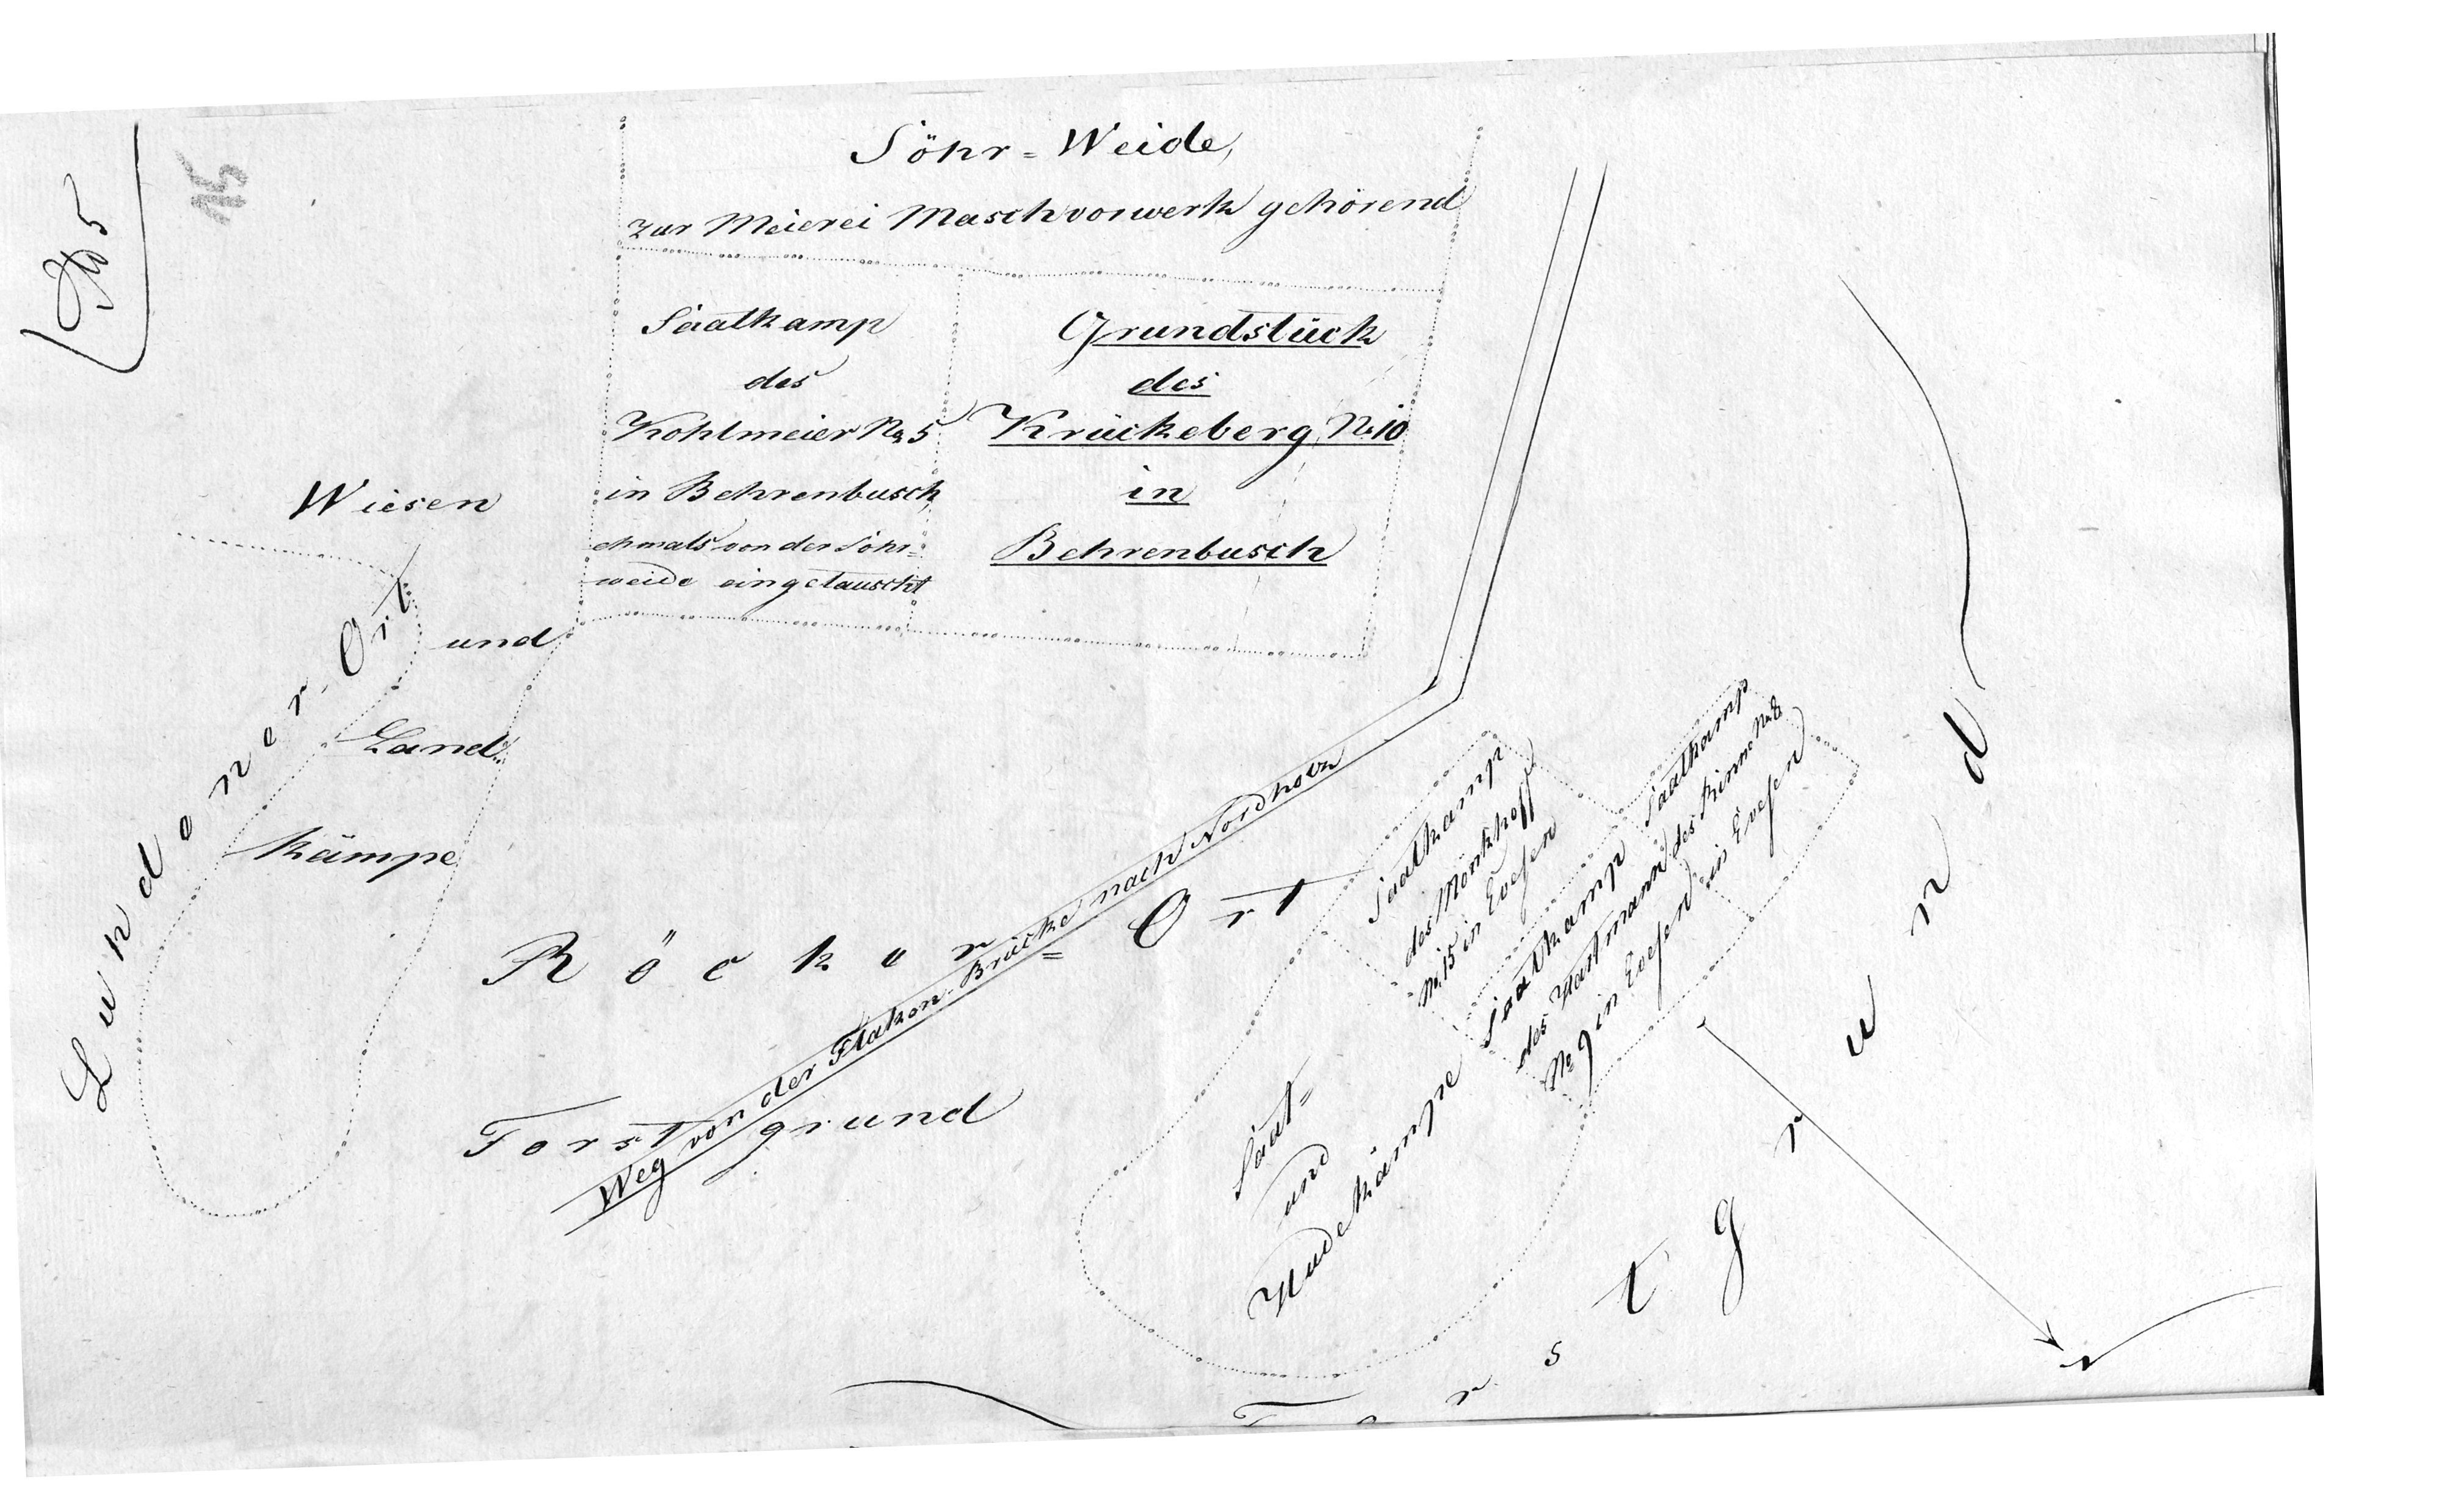 5
15
Söhr=Weide,
zur Meierei Maschvorwerk gehörend
Saatkamp
des
Kohlmeier No 5
in Behrenbusch
ehmals von der Söhr=
weide eingetauscht
Grundstück
des
Krückeberg No 10
in
Behrenbusch
Wiesen
und
Land=
kämpe
Lundener-Ort
Röcker=Ort
Weg von der Flaken-Brücke nach Nordholz
Forstgrund
Saatkamp
des Mönkhoff
No 15 in Evesen
Saatkamp
des Hartmann
No 9 in Evesen
Saatkamp
des
in Evesen
Saat=
und
Hudekämpe
Forstgrund